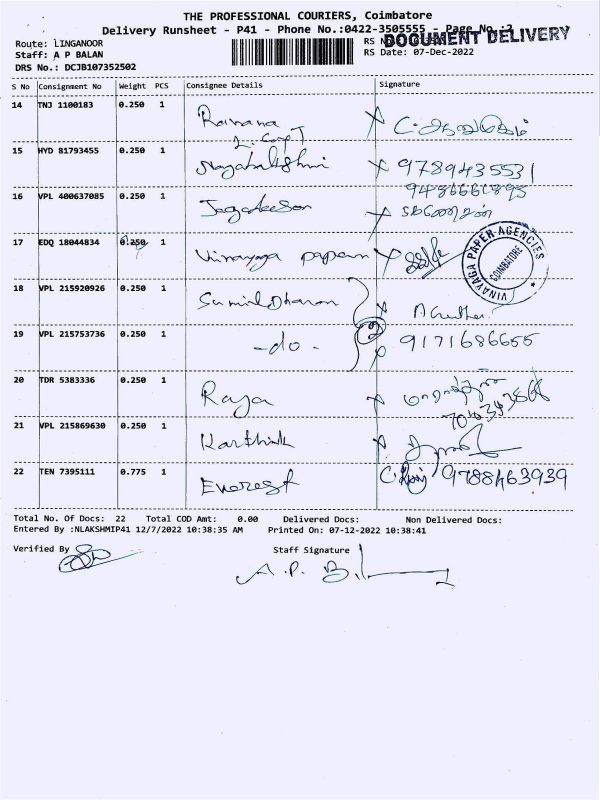 THE PROFESSIONAL COURIERS, Coimbatore
Delivery Runsheet - P41 - Phone No.:0422-3505555 - Page No.:2
DOCUMENT DELIVERY
Route: LINGANOOR
Staff: A P BALAN
RS Date: 07-Dec-2022
DRS No.: DCJB107352502
S No Consignment No Weight PCS Consignee Details Signature
14 TNJ 1100183 0.250 1 Ramana
15 HYD 81793455 0.250 1 Nagalakshmi 9789435531
16 VPL 400637085 0.250 1 Jagadeesan
17 EDQ 18044834 0.250 1 Vinayaga papers
VINAYAGA PAPER AGENCIES
COIMBATORE
18 VPL 215920926 0.250 1
19 VPL 215753736 0.250 1 -do- 9171686655
20 TDR 5383336 0.250 1 Raja
21 VPL 215869630 0.250 1 Karthik
22 TEN 7395111 0.775 1 Everest 9788463939
Total No. Of Docs: 22 Total COD Amt: 0.00 Delivered Docs: Non Delivered Docs:
Entered By :NLAKSHMIP41 12/7/2022 10:38:35 AM Printed On: 07-12-2022 10:38:41
Verified By
Staff Signature
A.P. B.